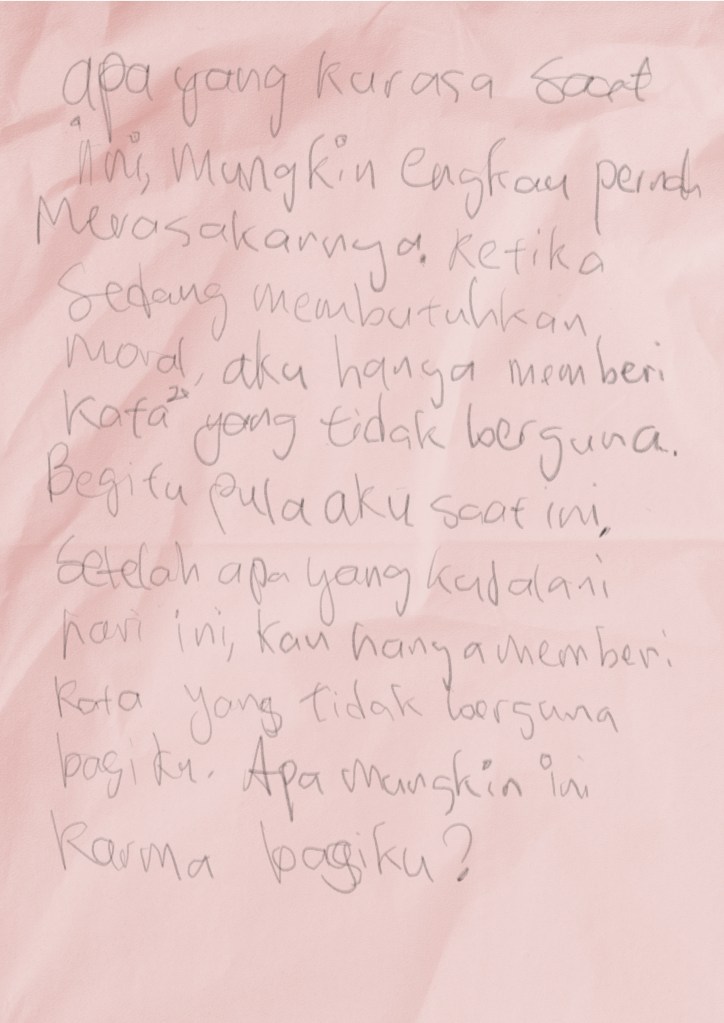 apa yang kurasa saat
ini, mungkin engkau pernah
Merasakannya. Ketika
Sedang membutuhkan
moral, aku hanya memberi
kata² yang tidak berguna.
Begitu pula aku saat ini,
Setelah apa yang kujalani
hari ini, kau hanya memberi
kata yang tidak berguna
bagiku. Apa mungkin ini
karma bagiku?